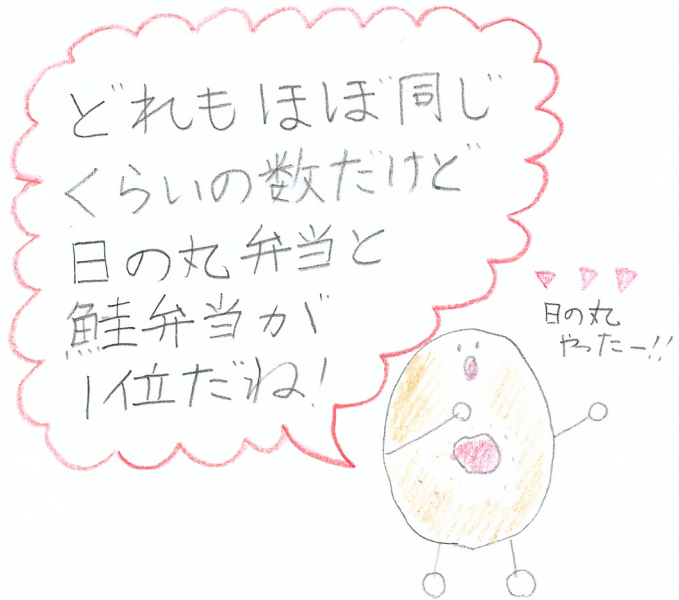 どれもほぼ同じ
くらいの数だけど
日の丸弁当と
鮭弁当が
1位だね!
日の丸
やったー!!